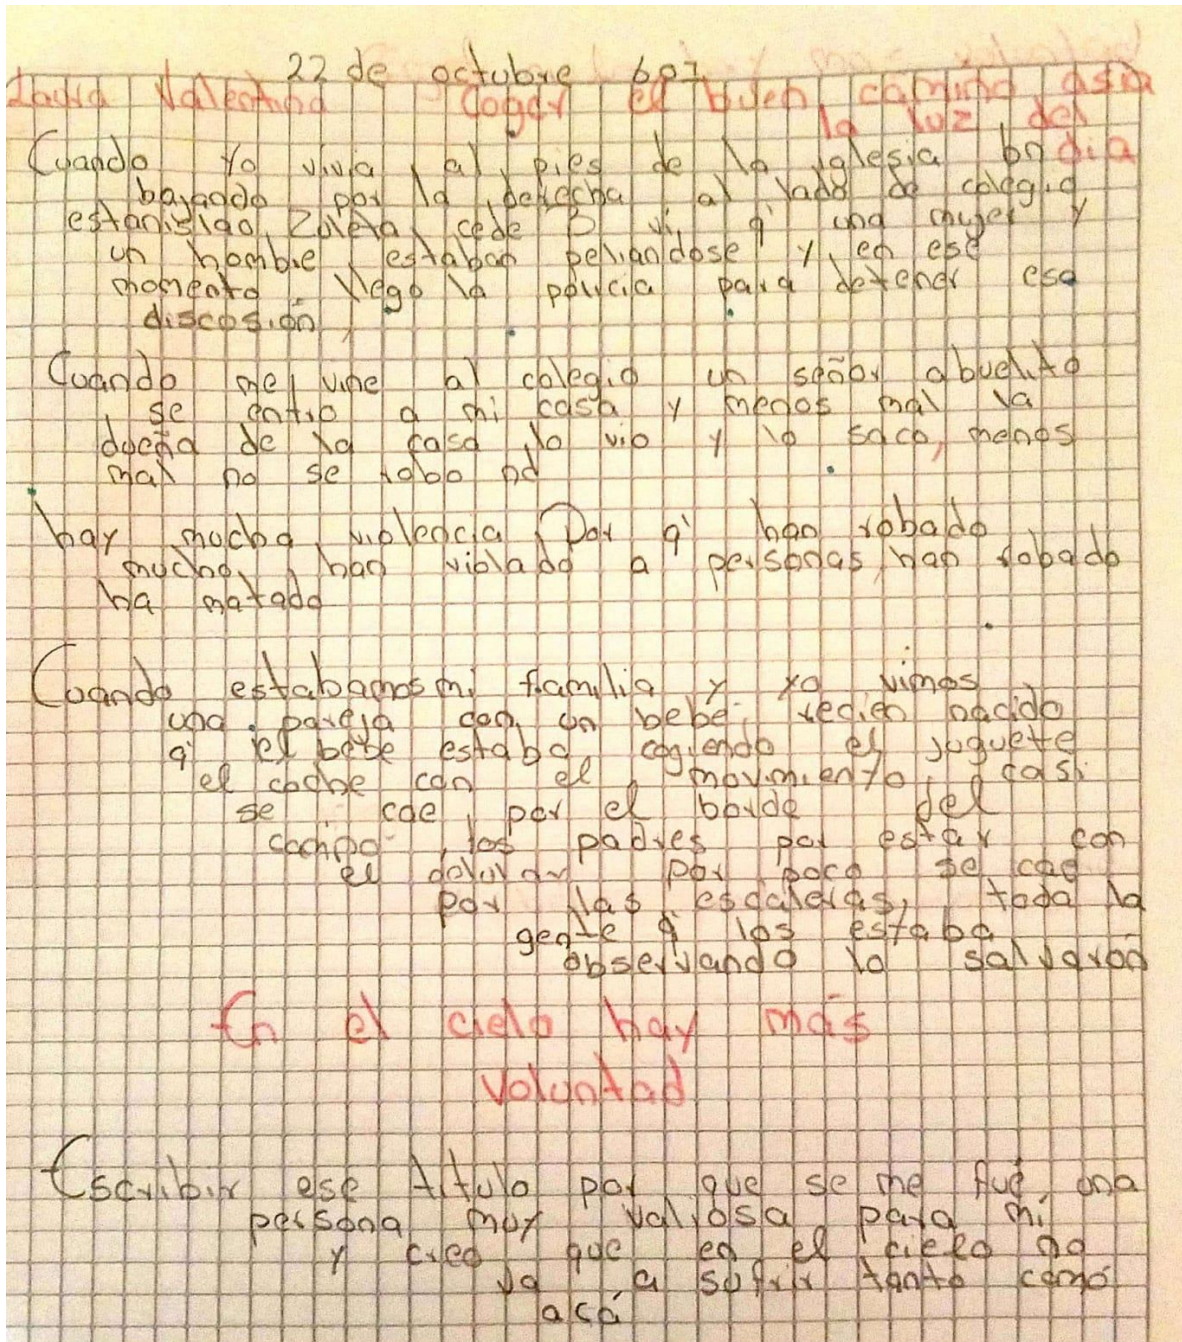 22 de octubre 607
Laura Valentina Coger el buen camino asia
la luz del
dia
Cuando yo vivia al pies de la iglesia
bajando por la derecha al lado de colegio
estanislao Zuleta cede B vi q' una mujer y
un hombre estaban peliandose y en ese
momento llego la policia para detener esa
discosion,
Cuando me vine al colegio un señor abuelito
se entro a mi casa y menos mal la
dueña de la casa lo vio y lo saco, menos
mal no se robo nd
hay mucha violencia Por q' han robado
mucho, han violado a personas, han robado
ha matado
Cuando estabamos mi familia y yo vimos
una pareja con un bebé recien nacido
q' el bebe estaba cogiendo el juguete
el coche con el movimiento, casi
se cae por el borde del
los padres por estar con
el celular por poco se cae
por las escaleras, toda la
gente q los estaba
observando lo salvaron
En el cielo hay más
voluntad
Escribir ese titulo por que se me fué una
persona muy valiosa para mi
y creo que en el cielo no
va a sufrir tanto como
acá